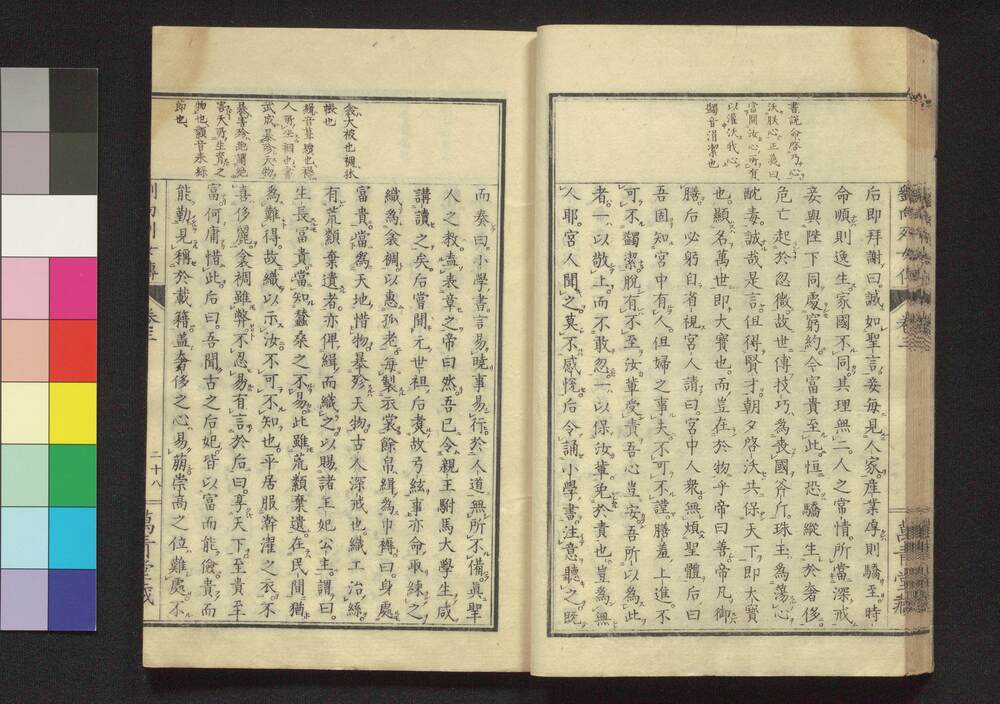 書說命啓乃心
沃朕心正義曰
當開汝心所有
以灌沃我心
蠲音涓潔也
后即拜謝曰誠如聖言妾每見人家産業厚則驕至時
命順則逸生家國不同其理無二人之常情所當深戒
妾與陛下同處窮約今富貴至此恒恐驕縱生於奢侈
危亡起於忽微故世傳技巧為喪國斧斤珠玉為蕩心
酖毒誠哉是言但得賢才朝夕啓沃共保天下即大寶
也顯名萬世即大寶也而豈在於物乎帝曰善帝凡御
膳后必躬自省視宮人請曰宮中人衆無煩聖體后曰
吾固知宮中有人但婦之事夫不可不謹膳羞上進不
可不蠲潔脫有不至汝輩受責吾心豈安吾所以為此
者一以敬上而不敢忽一以保汝輩免於責也豈為無
人耶宮人聞之莫不感悅后令誦小學書注意聽之既
衾大被也裯牀
帳也
緝音葺績也穩
人所坐褥也書
武成暴殄天物
暴害殄絶閼絶
害天所生育之
物也纇音耒絲
節也
而奏曰小學書言易曉事易行於人道無所不備真聖
人之教盍表章之帝曰然吾已令親王駙馬大學生咸
講讀之矣后嘗聞元世祖后煑故弓絃事亦命取練之
織為衾裯以惠孤老每製衣裳餘帛緝為巾褥曰身處
富貴當為天地惜物暴殄天物古人深戒也織工治絲
有荒纇棄遺者亦俾緝而織之以賜諸王妃公主謂曰
生長富貴當知蠶桑之不易此雖荒纇棄遺在民間猶
為難得故織以示汝不可不知也平居服澣濯之衣不
喜侈麗衾裯雖弊不忍易有言於后曰享天下至貴至
富何庸惜此后曰吾聞古之后妃皆以富而能儉貴而
能勤見稱於載籍蓋奢侈之心易萠崇高之位難處不
二十八